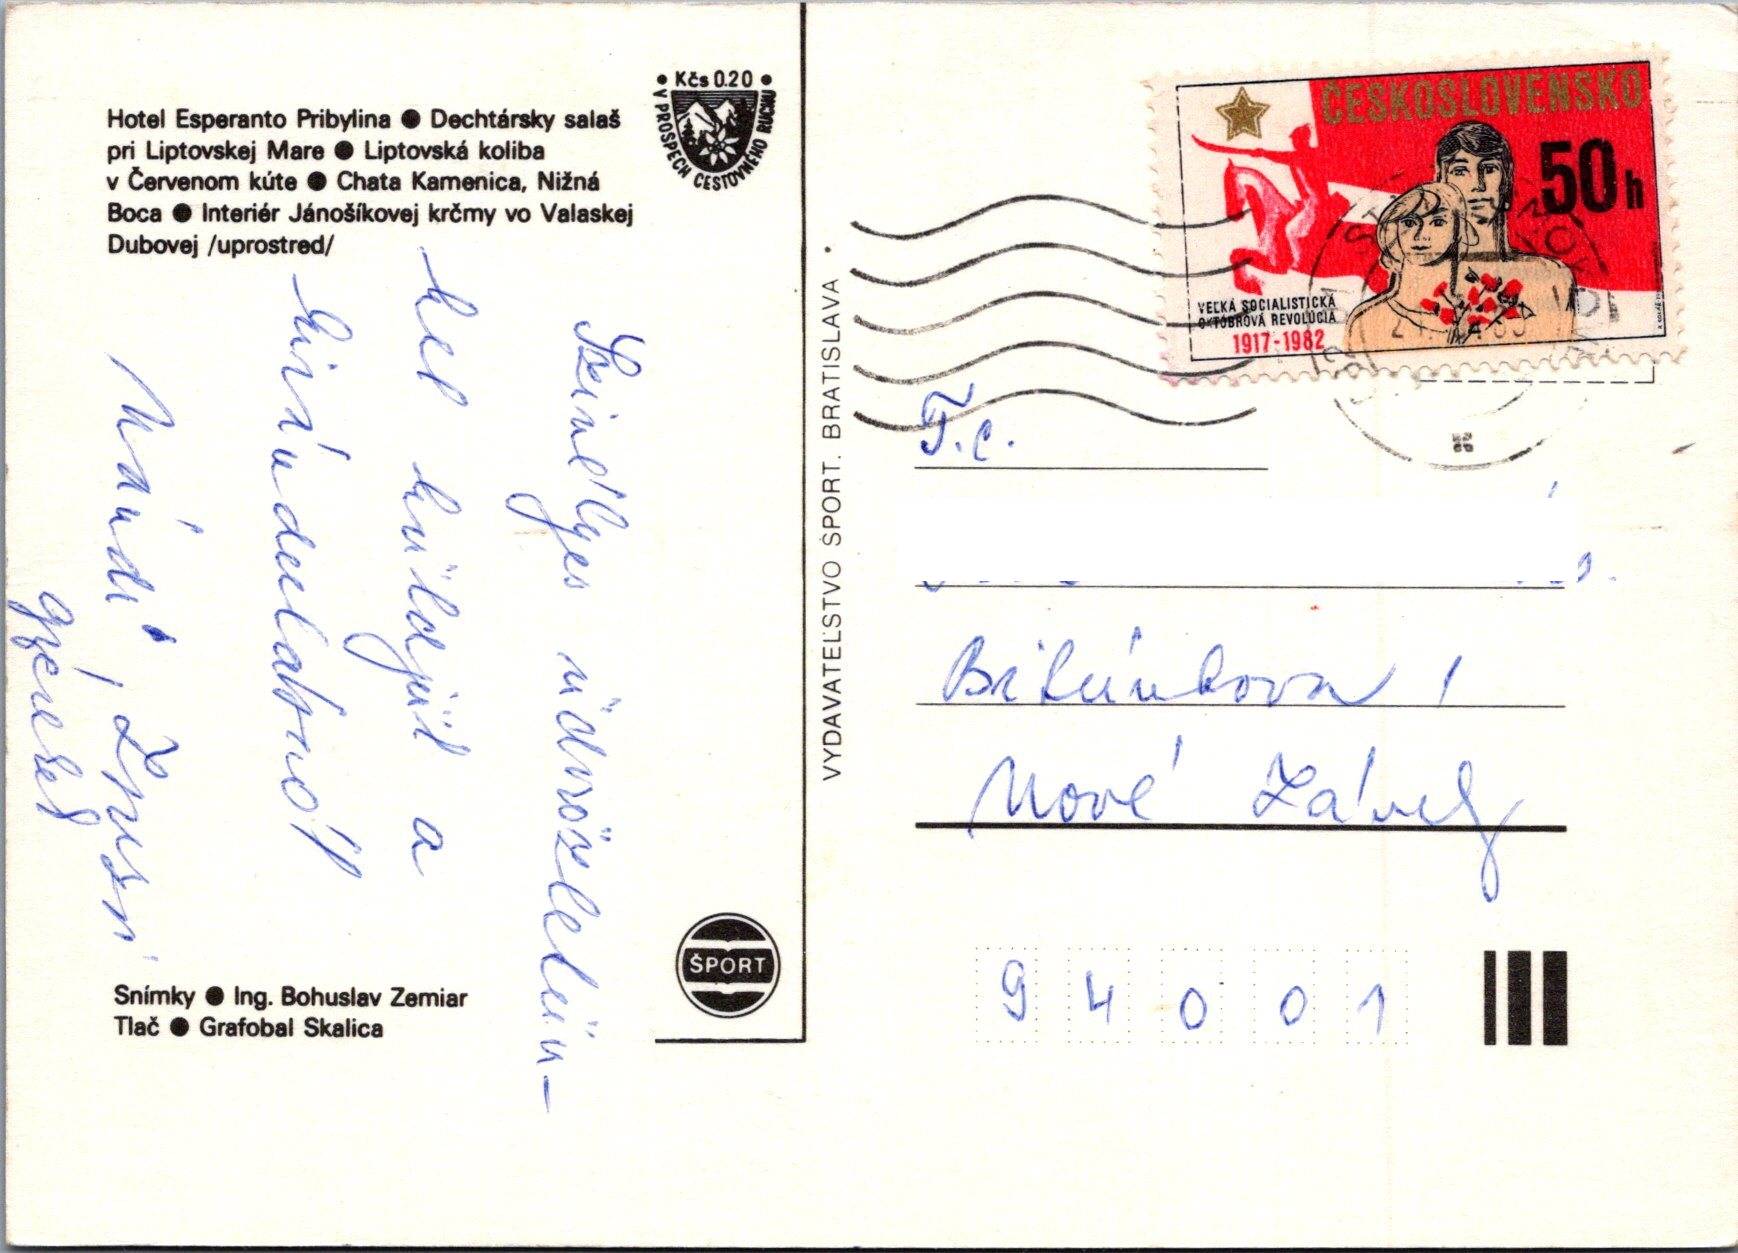 Hotel Esperanto Pribylina ● Dechtársky salaš
pri Liptovskej Mare ● Liptovská koliba
v Červenom kúte ● Chata Kamenica, Nižná
Boca ● Interiér Jánošíkovej krčmy vo Valaskej
Dubovej /uprostred/
● Kčs 0.20 ●
V PROSPECH CESTOVNÉHO RUCHU
Szivélyes üdvözletün-
ket küldjük a
kirándulatról
Nándi, Zsuzsi
gyerek
Snímky ● Ing. Bohuslav Zemiar
Tlač ● Grafobal Skalica
ŠPORT
VYDAVATEĽSTVO ŠPORT. BRATISLAVA
ČESKOSLOVENSKO
50 h
VEĽKÁ SOCIALISTICKÁ
OKTÓBROVÁ REVOLÚCIA
1917-1982
T.c.
1
Nové Zámky
94001